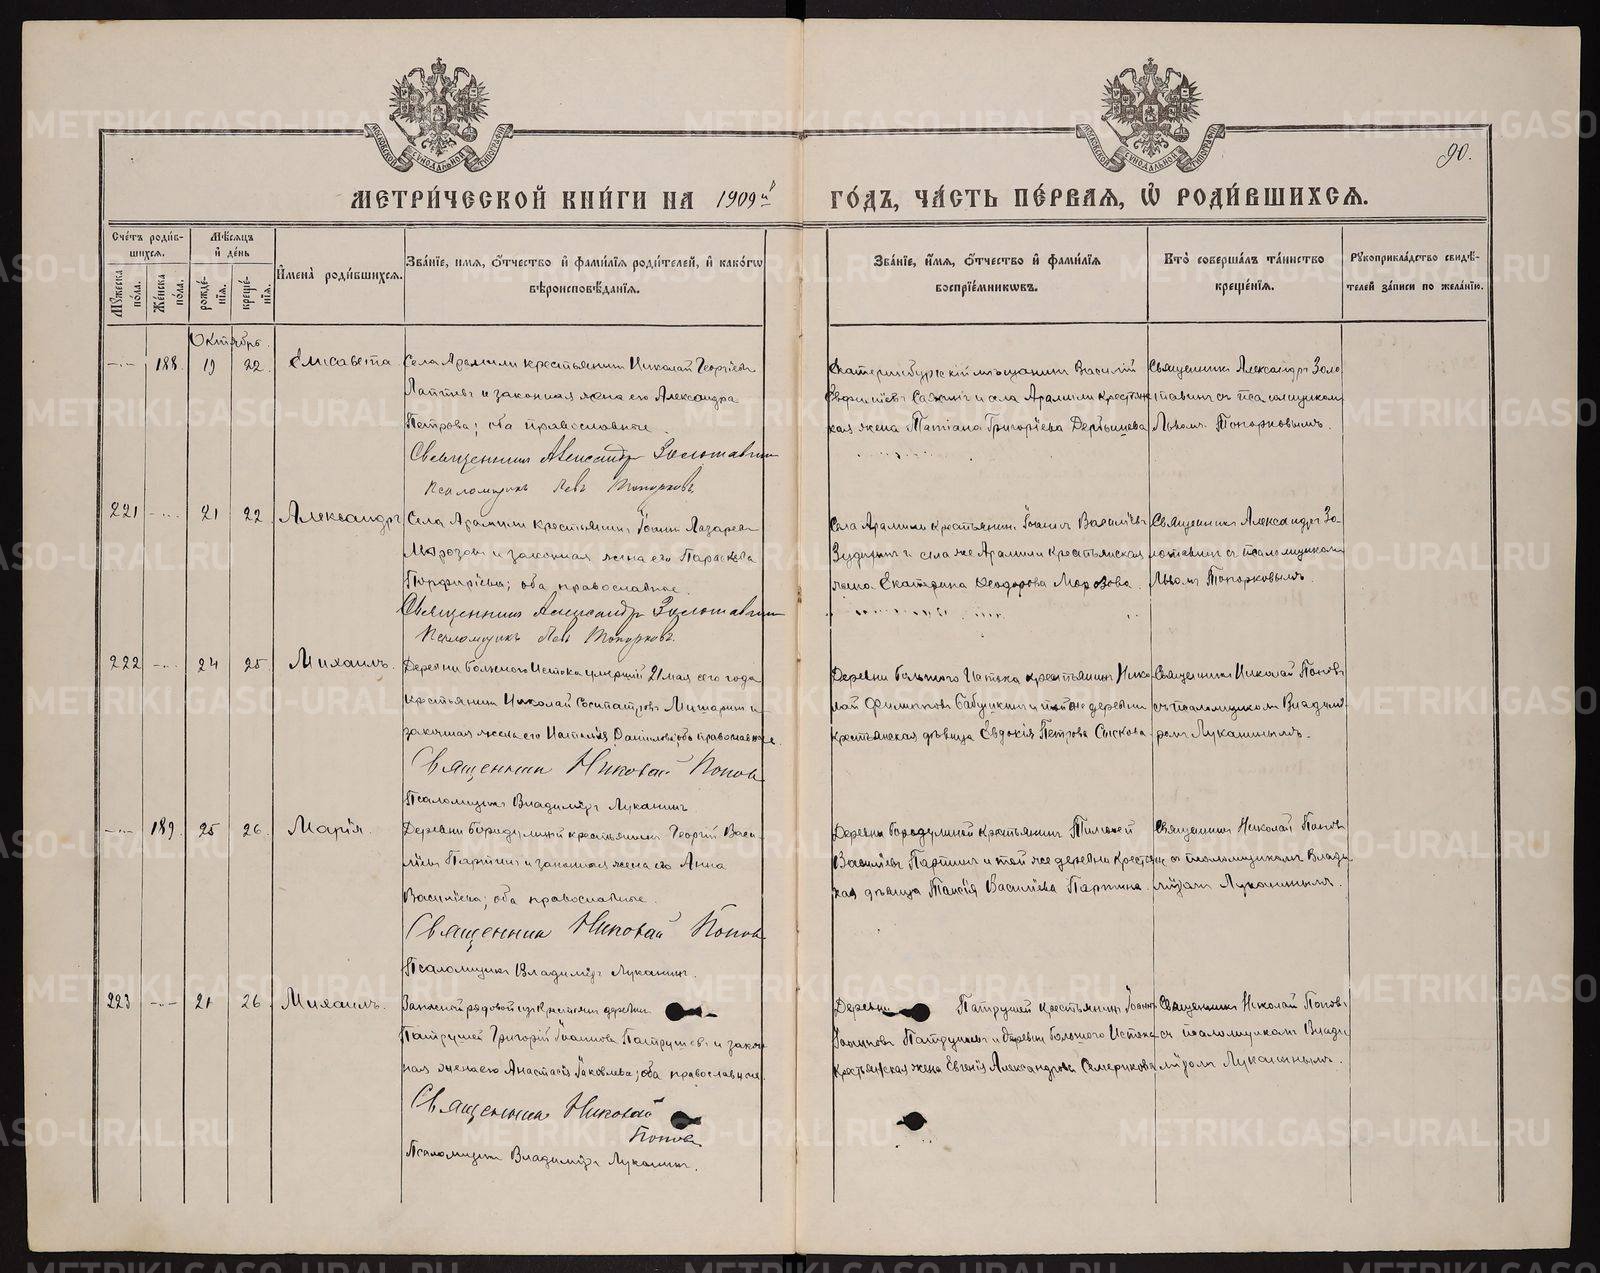 МОСКОВСКОЙ СУНОДАЛЬНОЙ ТИПОГРАФІИ
МОСКОВСКОЙ СУНОДАЛЬНОЙ ТИПОГРАФІИ
90.
МЕТРИ́ЧЕСКОЙ КНИ́ГИ НА 1909й ГО́ДЪ, ЧА́СТЬ ПЕ́РВАЯ, Ѡ РОДИ́ВШИХСЯ.
Сче́тъ роди́в-
шихся.
Мѣ́сяцъ
и҆ де́нь
Мꙋ́жеска по́ла.
Же́нска по́ла.
рожде́-нїя.
креще́-нїя.
И҆мена̀ роди́вшихся.
Зва́нїе, и҆мя, ѻ҆́тчество и҆ фами́лїя роди́телей, и҆ како́гѡ
вѣроисповѣ́данїя.
Зва́нїе, и҆́мя, ѻ҆́тчество и҆ фами́лїя
воспрїе́мникѡвъ.
Кто̀ соверша́лъ та́инство
креще́нїя.
Рꙋкоприкла́дство свидѣ́-
телей за́писи по жела́нїю.
Октябрь.
188. 19 22. Елисавета
Села Арамили крестьянинъ Николай Георгіевъ
Лаптевъ и законная жена его Александра
Петрова; оба православные.
Священникъ Александръ Золотавинъ
Псаломщикъ Левъ Топорковъ
Екатеринбургскій мѣщанинъ Василій
и села Арамили крестьянс-
кая жена Татіана Григоріева
Священникъ Александръ Золо-
тавинъ съ псаломщикомъ
Львомъ Топорковымъ.
221 21 22 Александръ
Села Арамили крестьянинъ Іоаннъ Лазаревъ
Морозовъ и законная жена его Параскева
Порфиріева; оба православные.
Священникъ Александръ Золотавинъ
Псаломщикъ Левъ Топорковъ.
Села Арамили крестьянинъ Іоаннъ Васильевъ
и села же Арамили крестьянская
жена Екатерина Ѳеодорова Морозова.
Священникъ Александръ Зо-
лотавинъ съ псаломщикомъ
Львомъ Топорковымъ.
222 24 25 Михаилъ.
Деревни Большого Истока умершій 21 мая сего года
крестьянинъ Николай Сосипатровъ Мишаринъ и
законная жена его Наталія Даніилова; оба православные.
Священникъ Николай Поповъ
Псаломщикъ Владиміръ Луканинъ
Деревни Большого Истока крестьянинъ Нико-
лай Филипповъ Бабушкинъ и той же деревни
крестьянская дѣвица Евдокія Петрова
Священникъ Николай Поповъ
съ псаломщикомъ Владимі-
ромъ Луканинымъ.
189. 25 26. Марія.
Деревни Бородулиной крестьянинъ Георгій Васи-
ліевъ Паргинъ и законная жена его Анна
Василіева; оба православные.
Священникъ Николай Поповъ
Псаломщикъ Владиміръ Луканинъ.
Деревни Бородулиной крестьянинъ Тимоѳей
Василіевъ Паргинъ и той же деревни крестьянс-
кая дѣвица Таисія Василіева Паргина.
Священникъ Николай Поповъ
съ псаломщикомъ Влади-
міромъ Луканинымъ.
223 21 26. Михаилъ.
Запасной рядовой изъ крестьянъ деревни
Патрушей Григорій Іоанновъ Патрушевъ и закон-
ная жена его Анастасія Іаковлева; оба православные.
Священникъ Николай
Поповъ
Псаломщикъ Владиміръ Луканинъ.
Деревни Патрушей крестьянинъ Іоаннъ
Патрушевъ и деревни Большого Истока
крестьянская жена Евгенія Александрова Семерикова
Священникъ Николай Поповъ
съ псаломщикомъ Влади-
міромъ Луканинымъ.
METRIKI.GASO-URAL.RU